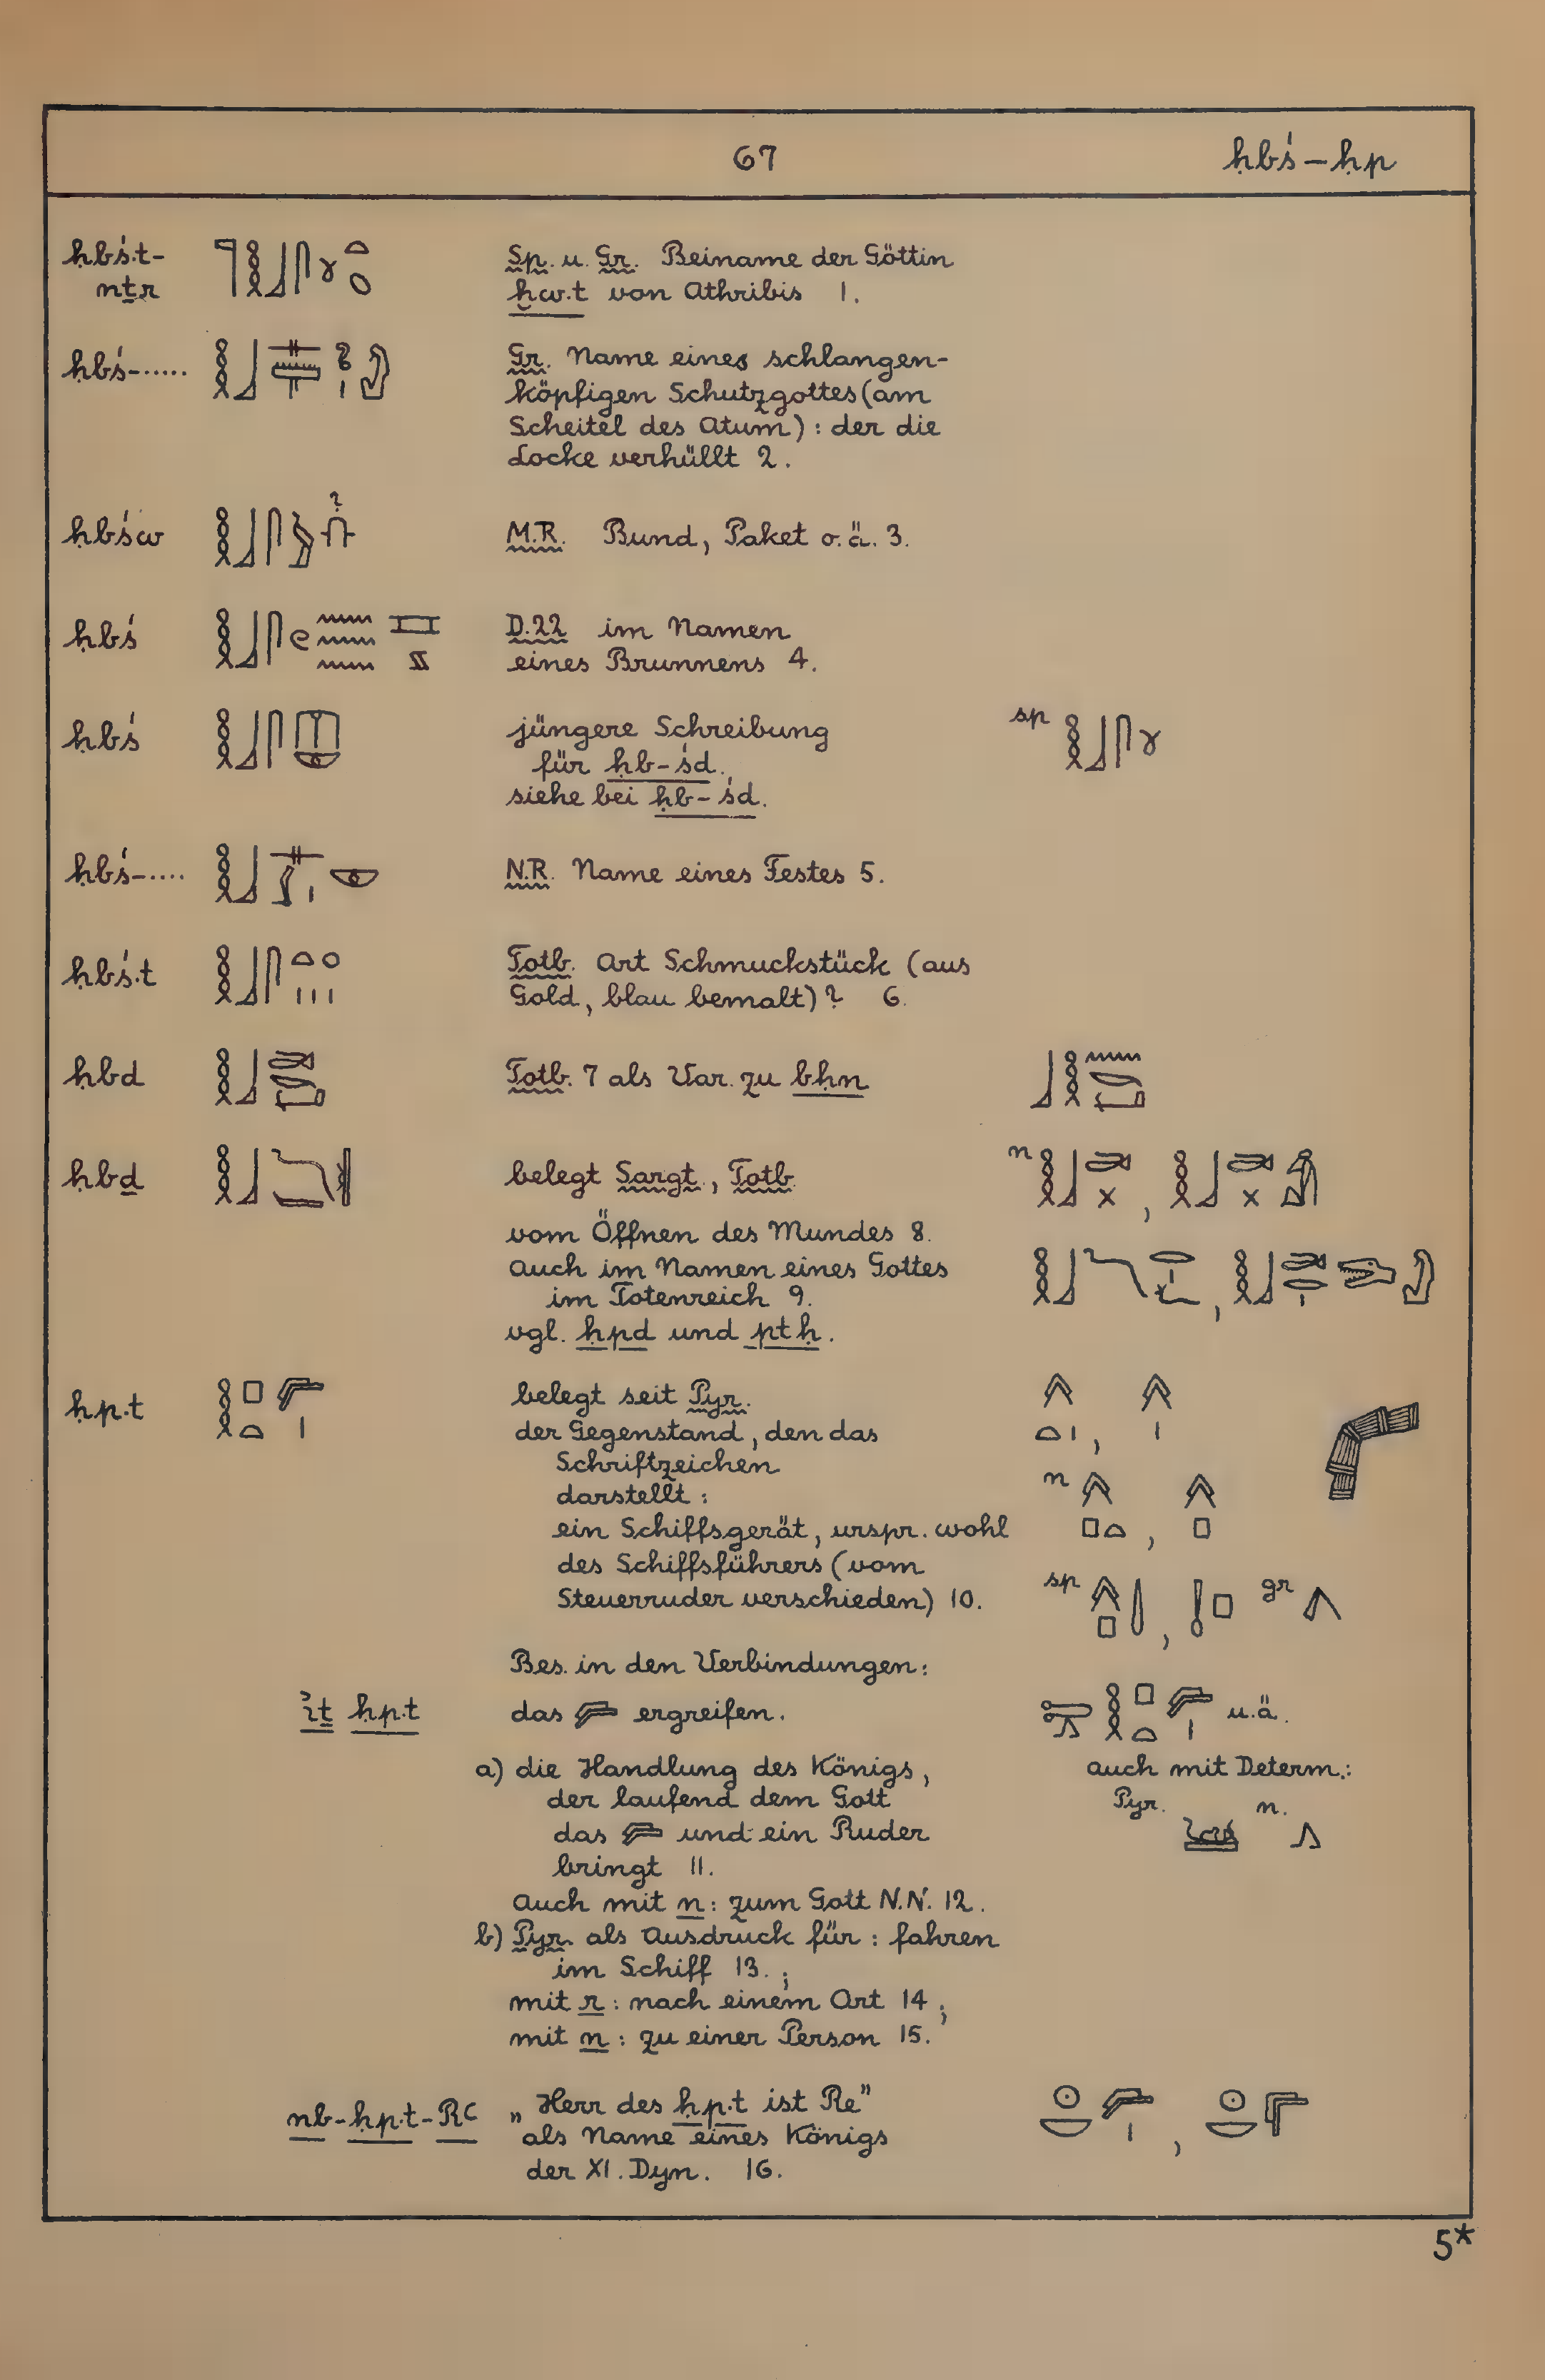 67
ḥbś – ḥp
ḥbś.t-
nṯr
Sp. u. Gr. Beiname der Göttin
ḫw.t von Athribis 1.
ḥbś-.....
Gr. Name eines schlangen-
köpfigen Schutzgottes (am
Scheitel des Atum): der die
Locke verhüllt 2.
ḥbśw
?
M.R. Bund, Paket o.ä. 3.
ḥbś
D.22 im Namen
eines Brunnens 4.
ḥbś
jüngere Schreibung
für ḥb-śd.
siehe bei ḥb-śd.
sp
ḥbś-....
N.R. Name eines Festes 5.
ḥbś.t
Totb. Art Schmuckstück (aus
Gold, blau bemalt)? 6.
ḥbd
Totb. 7 als Var. zu bḥn
ḥbḏ
belegt Sargt., Totb.
n
vom Öffnen des Mundes 8.
auch im Namen eines Gottes
im Totenreich 9.
vgl. ḥpd und ptḥ.
ḥp.t
belegt seit Pyr.
der Gegenstand, den das
Schriftzeichen
darstellt:
n
ein Schiffsgerät, urspr. wohl
des Schiffsführers (vom
Steuerruder verschieden) 10.
sp
gr
Bes. in den Verbindungen:
iṯ ḥp.t
das ergreifen.
u.ä.
a) die Handlung des Königs,
der laufend dem Gott
das und ein Ruder
bringt 11.
auch mit Determ.:
Pyr. n.
auch mit n: zum Gott N.N. 12.
b) Pyr. als Ausdruck für: fahren
im Schiff 13.;
mit r: nach einem Ort 14;
mit n: zu einer Person 15.
nb-ḥp.t-Rꜥ
„Herr des ḥp.t ist Re"
als Name eines Königs
der XI. Dyn. 16.
5*